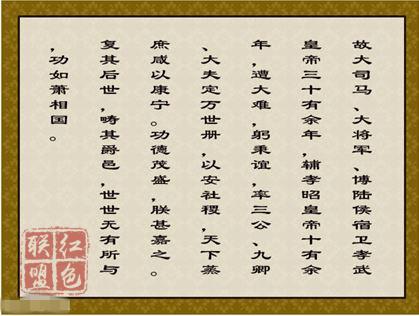 故大司马、大将军、博陆侯宿卫孝武
皇帝三十有余年,辅孝昭皇帝十有余
年,遭大难,躬秉谊,率三公、九卿
、大夫定万世册,以安社稷,天下蒸
庶咸以康宁。功德茂盛,朕甚嘉之。
复其后世,畴其爵邑,世世无有所与
,功如萧相国。
红色
联盟